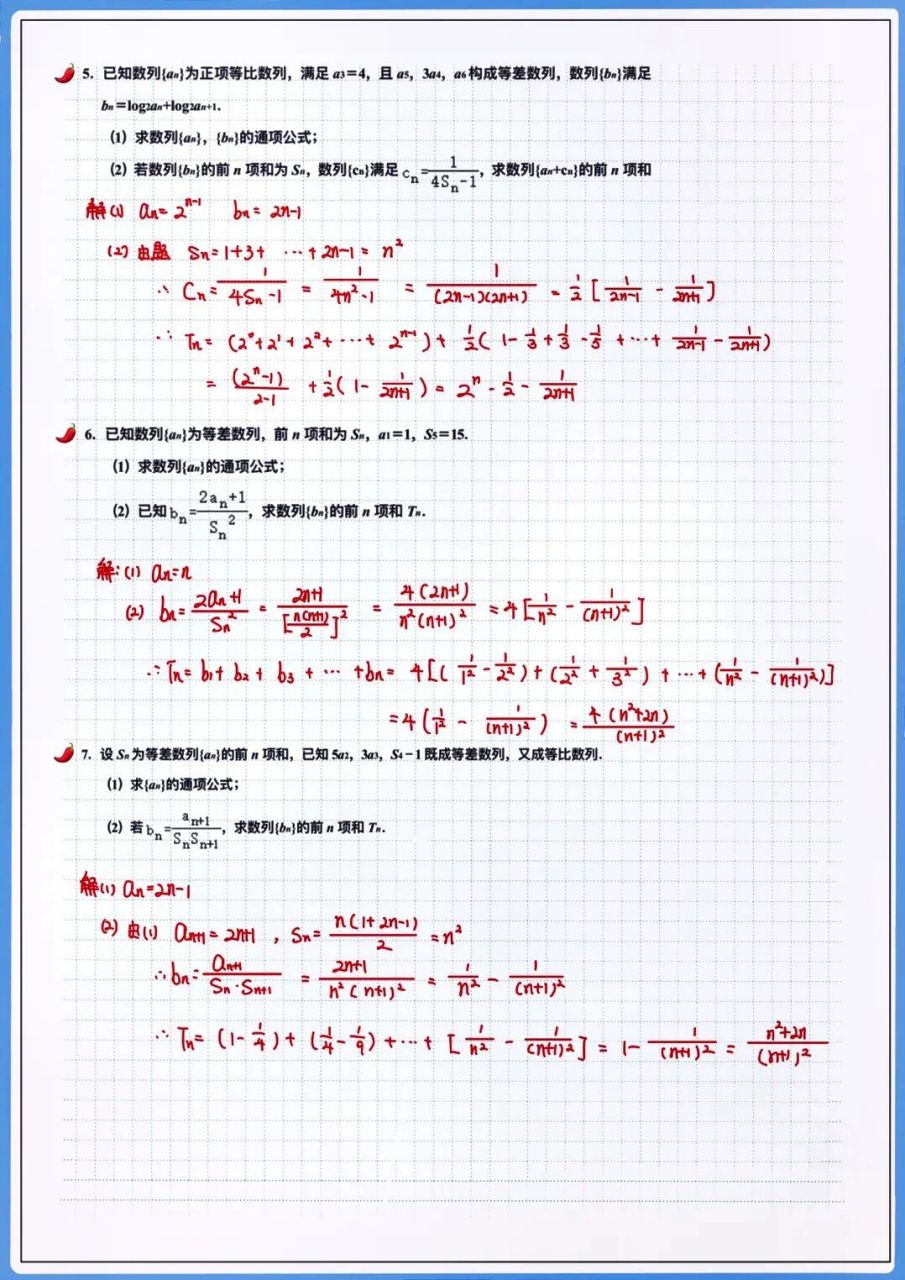 5. 已知数列{an}为正项等比数列，满足 a3=4，且 a5，3a4，a6构成等差数列，数列{bn}满足
bn=log2an+log2an+1.
(1) 求数列{an}，{bn}的通项公式；
(2) 若数列{bn}的前 n 项和为 Sn，数列{cn}满足 cn=1/(4Sn-1)，求数列{an+cn}的前 n 项和
解(1) an=2^(n-1) bn=2n-1
(2) 由题 Sn=1+3+ ⋯+2n-1= n²
∴ Cn=1/(4Sn-1) = 1/(4n²-1) = 1/((2n-1)(2n+1)) = 1/2 [1/(2n-1) - 1/(2n+1)]
∴ Tn= (2⁰+2¹+2²+⋯+2^(n-1))+ 1/2(1-1/3+1/3-1/5+⋯+1/(2n-1)-1/(2n+1))
= (2^n-1)/(2-1) +1/2(1-1/(2n+1))= 2^n-1/2-1/(2n+1)
6. 已知数列{an}为等差数列，前 n 项和为 Sn，a1=1，S5=15.
(1) 求数列{an}的通项公式；
(2) 已知 bn=(2an+1)/Sn²，求数列{bn}的前 n 项和 Tn.
解:(1) an=n
(2) bn=(2an+1)/Sn² = (2n+1)/[n(n+1)/2]² = 4(2n+1)/(n²(n+1)²) =4[1/n² - 1/(n+1)²]
∴Tn= b1+b2+b3+⋯+bn= 4[(1/1²-1/2²)+(1/2²+1/3²)+⋯+(1/n²-1/(n+1)²)]
=4(1/1² - 1/(n+1)²) =4(n²+2n)/(n+1)²
7. 设 Sn为等差数列{an}的前 n 项和，已知 5a2，3a3，S4-1 既成等差数列，又成等比数列.
(1) 求{an}的通项公式；
(2) 若 bn=an+1/(SnSn+1)，求数列{bn}的前 n 项和 Tn.
解(1) an=2n-1
(2) 由(1) an+1=2n+1 ，Sn=n(1+2n-1)/2 =n²
∴bn=an+1/(Sn·Sn+1) = (2n+1)/(n²(n+1)²) = 1/n² - 1/(n+1)²
∴ Tn= (1-1/4)+(1/4-1/9)+⋯+[1/n² - 1/(n+1)²] = 1- 1/(n+1)² = (n²+2n)/(n+1)²